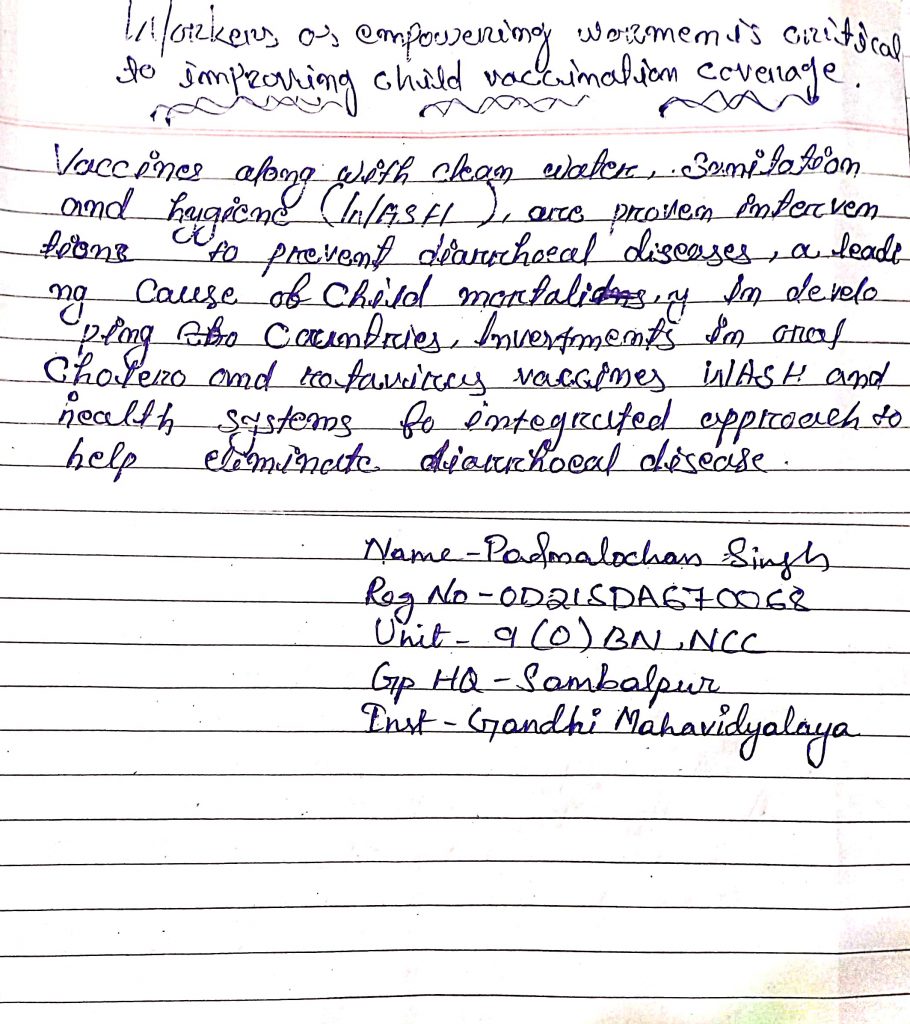 Workers as empowering women is critical
to improving child vaccination coverage.
Vaccines along with clean water, Sanitation
and hygiene (WASH), are proven interven
tions to prevent diarrhoeal diseases, a leadi
ng Cause of Child mortality in develo
ping Countries, Investments in oral
Cholera and rotavirus vaccines WASH and
health systems to integrated approach to
help eliminate diarrhoeal disease.
Name - Padmalochan Singh
Reg No - OD21SDA670068
Unit - 9 (O) BN, NCC
Gp HQ - Sambalpur
Inst - Gandhi Mahavidyalaya